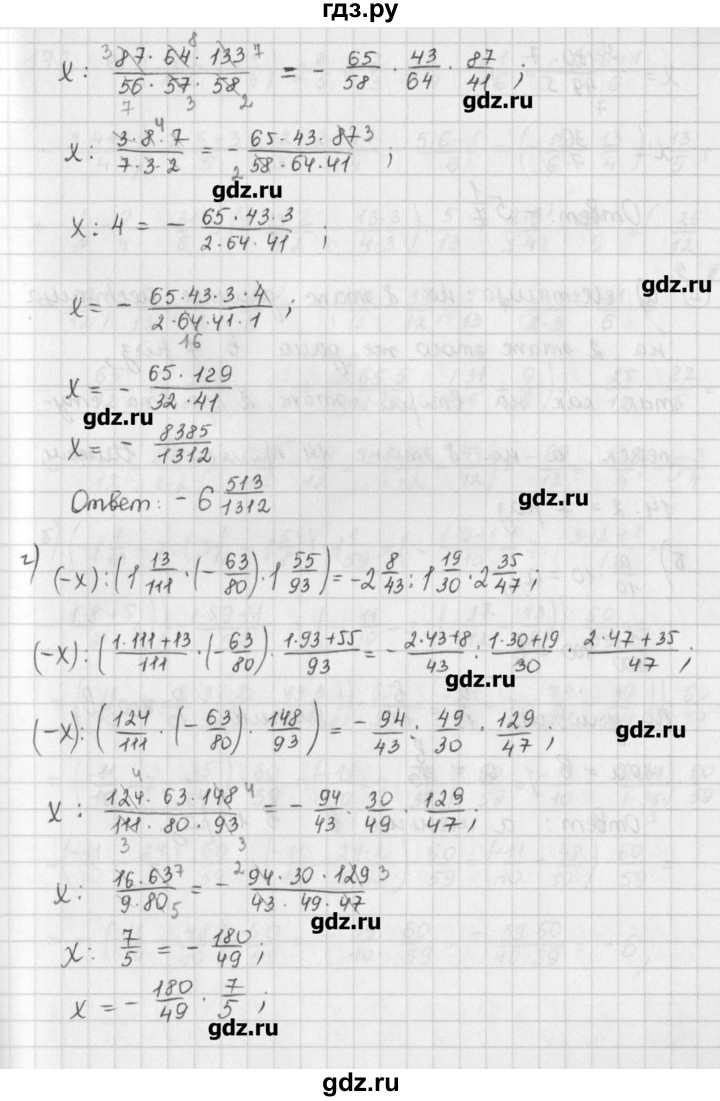 гдз.ру
x : (87 · 64 · 133)/(56 · 57 · 58) = − 65/58 · 43/64 · 87/41 ; 3 8 7 7 3 2
gdz.ru
x : (3 · 8 · 7)/(7 · 3 · 2) = − (65 · 43 · 87)/(58 · 64 · 41) ; 4 3 2
gdz.ru
x : 4 = − (65 · 43 · 3)/(2 · 64 · 41) ;
gdz.ru
x = − (65 · 43 · 3 · 4)/(2 · 64 · 41 · 1) ; 16
x = − (65 · 129)/(32 · 41)
gdz.ru
x = − 8385/1312
Ответ: − 6 513/1312
gdz.ru
г) (−x) : (1 13/111 · (− 63/80) · 1 55/93) = −2 8/43 : 1 19/30 · 2 35/47 ;
(−x) : ((1·111+13)/111 · (− 63/80) · (1·93+55)/93 = − (2·43+8)/43 : (1·30+19)/30 · (2·47+35)/47 ;
gdz.ru
(−x) : (124/111 · (− 63/80) · 148/93) = − 94/43 : 49/30 · 129/47 ;
gdz.ru
x : (124 · 63 · 148)/(111 · 80 · 93) = − 94/43 · 30/49 · 129/47 ; 4 4 3 3
x : (16 · 63)/(9 · 80) = − (94 · 30 · 129)/(43 · 49 · 47) 7 5 2 3
gdz.ru
x : 7/5 = − 180/49 ;
x = − 180/49 · 7/5 ;
gdz.ru
gdz.ru